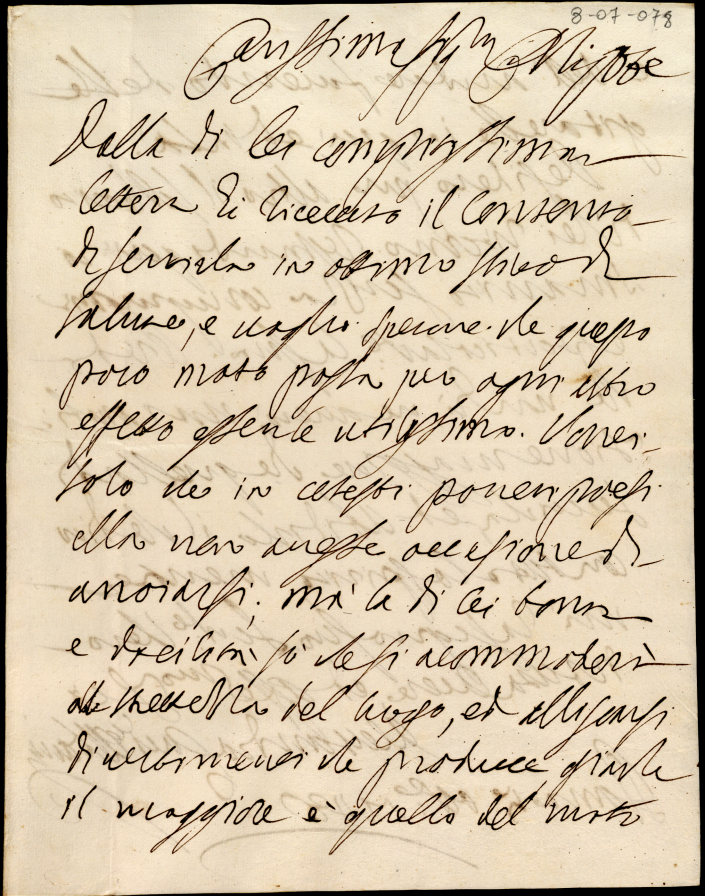 8-07-078
Carissima Sig.ra Nipote
Dalla di lei compitissima
lettera hò ricevuto il contento
di saperla in ottimo stato di
salute, e voglio sperare che questo
poco moto possa per ogni altro
effetto esserle utilissimo. Vorrei
solo che in cotesti poveri paesi
ella non avesse occasione di
annoiarsi; mà la di lei bontà
e docilità sò che si accommoderà
alla del luogo, ed alli scarsi
divertimenti che produce
il maggiore è quello del moto